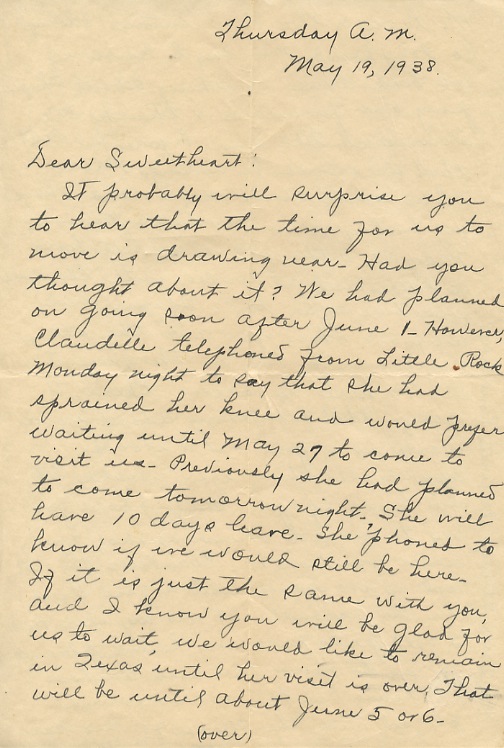 Thursday A.M.
May 19, 1938.
Dear Sweetheart:
It probably will surprise you
to hear that the time for us to
move is drawing near - Had you
thought about it? We had planned
on going soon after June 1 - However,
Claudelle telephoned from Little Rock
Monday night to say that she had
sprained her knee and would prefer
waiting until May 27 to come to
visit us - Previously she had planned
to come tomorrow night. She will
have 10 days leave - She 'phoned to
know if we would still be here -
If it is just the same with you,
and I know you will be glad for
us to wait, we would like to remain
in Texas until her visit is over. That
will be until about June 5 or 6 -
(over)